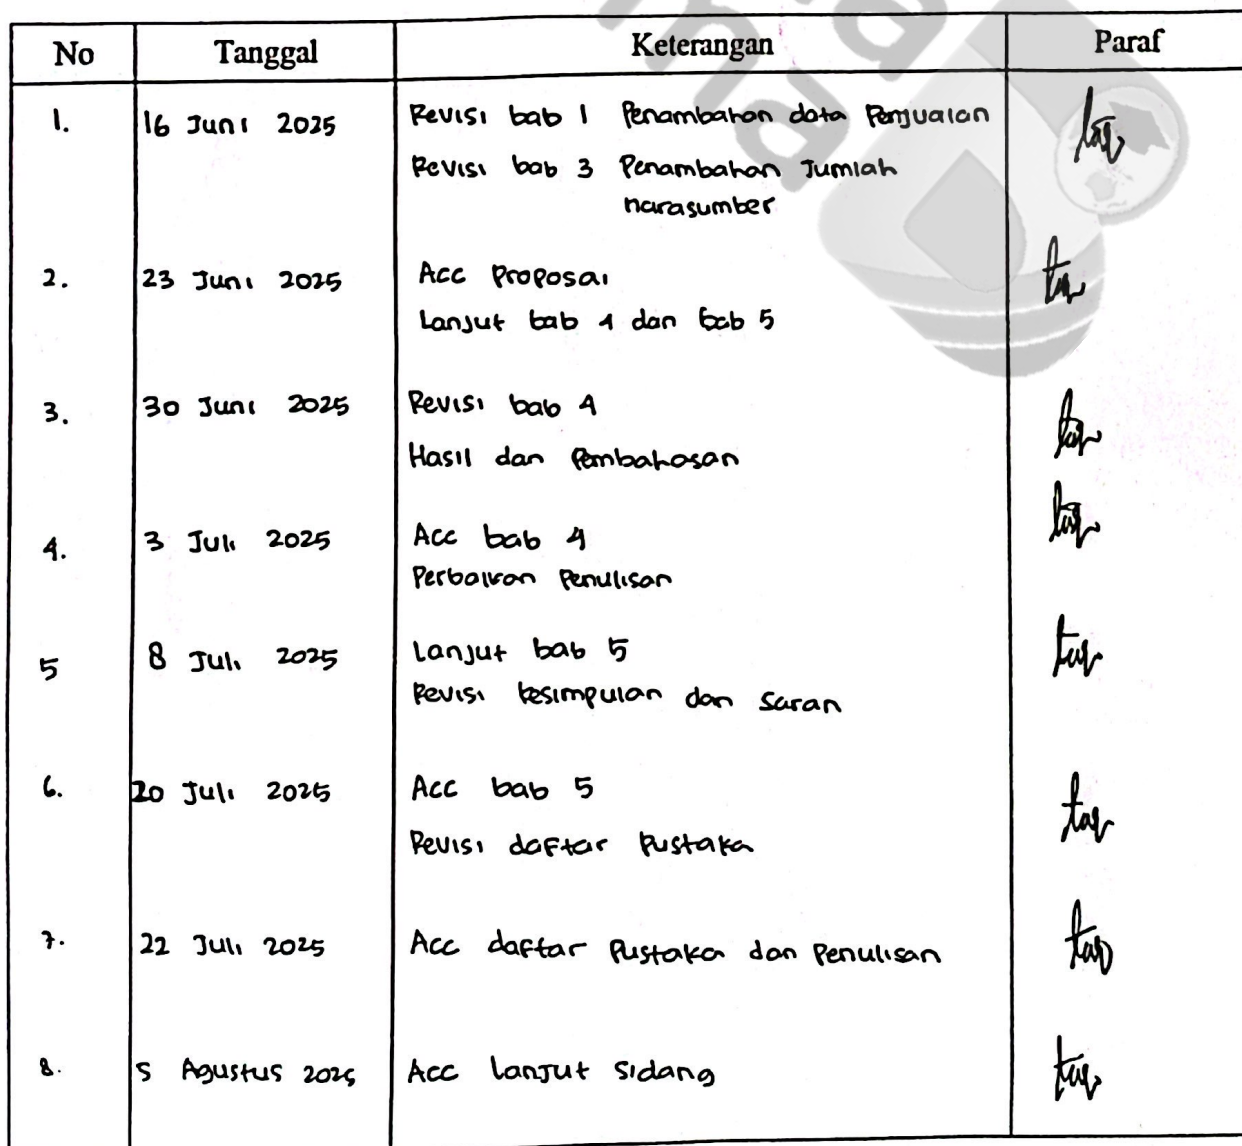 No Tanggal Keterangan Paraf
1. 16 Juni 2025 Revisi bab 1 Penambahan data Penjualan
Revisi bab 3 Penambahan Jumlah
narasumber
2. 23 Juni 2025 Acc Proposal
Lanjut bab 4 dan bab 5
3. 30 Juni 2025 Revisi bab 4
Hasil dan Pembahasan
4. 3 Juli 2025 Acc bab 4
Perbaikan Penulisan
5 8 Juli 2025 Lanjut bab 5
Revisi kesimpulan dan Saran
6. 20 Juli 2025 Acc bab 5
Revisi daftar Pustaka
7. 22 Juli 2025 Acc daftar Pustaka dan Penulisan
8. 5 Agustus 2025 Acc Lanjut Sidang